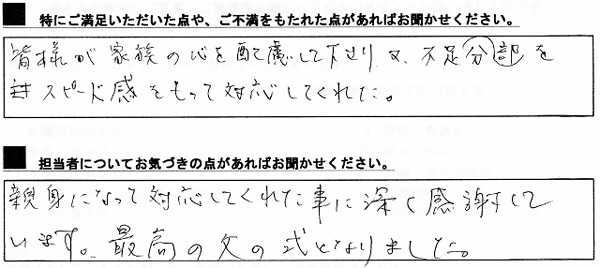 ■ 特にご満足いただいた点や、ご不満をもたれた点があればお聞かせください。
皆様が家族の心を配慮して下さり、又、不足分部を
スピード感をもって対応してくれた。
■ 担当者についてお気づきの点があればお聞かせください。
親身になって対応してくれた事に深く感謝して
います。最高の父の式となりました。